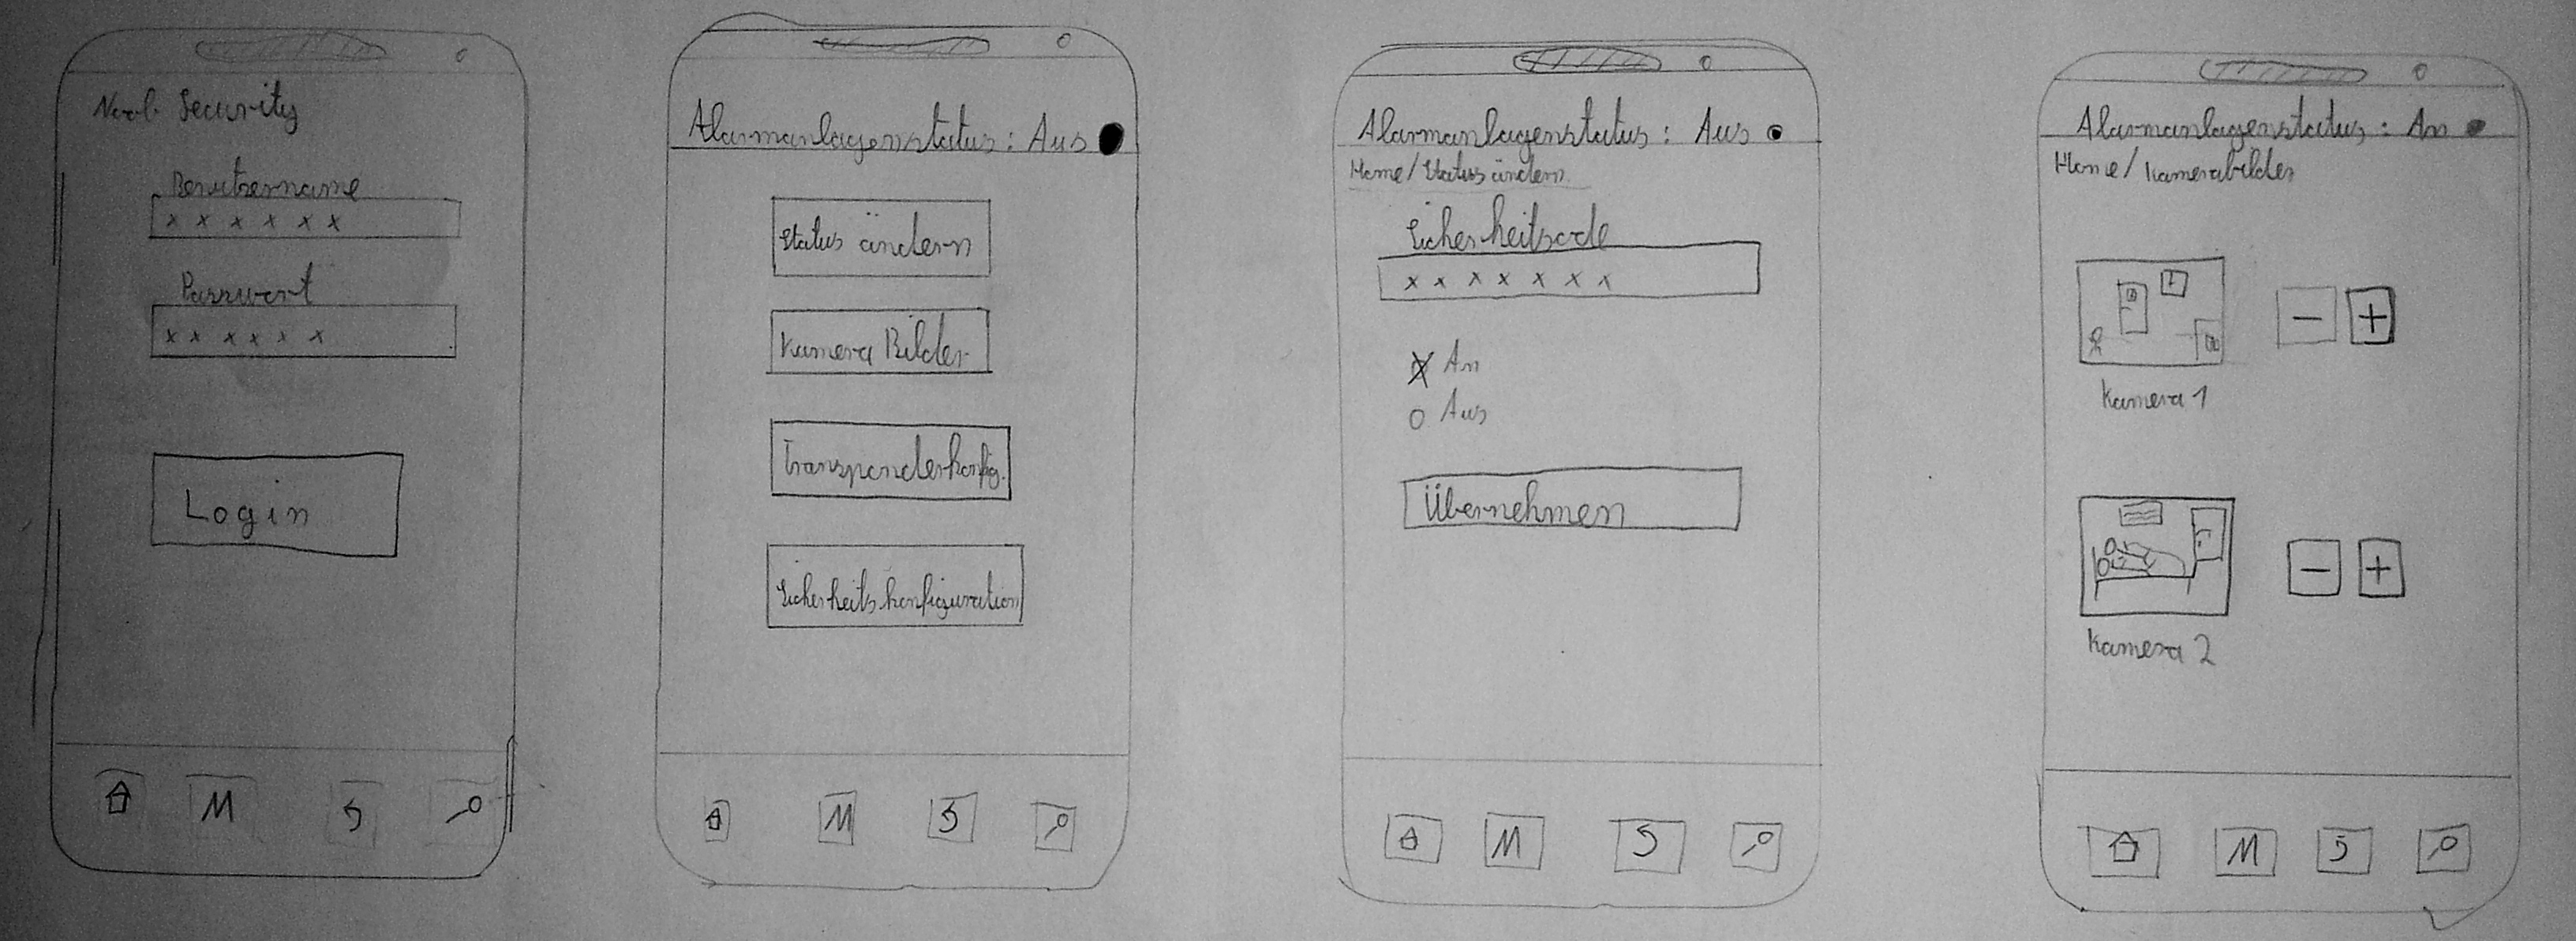 Noob Security
Benutzername
x x x x x x
Passwort
x x x x x x
Login
M
Alarmanlagenstatus: Aus
Status ändern
Kamera Bilder
Transponderkonfig.
Sicherheitskonfiguration
M
Alarmanlagenstatus: Aus
Home/Status ändern
Sicherheitscode
x x x x x x x
An
Aus
Übernehmen
M
Alarmanlagenstatus: An
Home/Kamerabilder
- +
Kamera 1
- +
Kamera 2
M